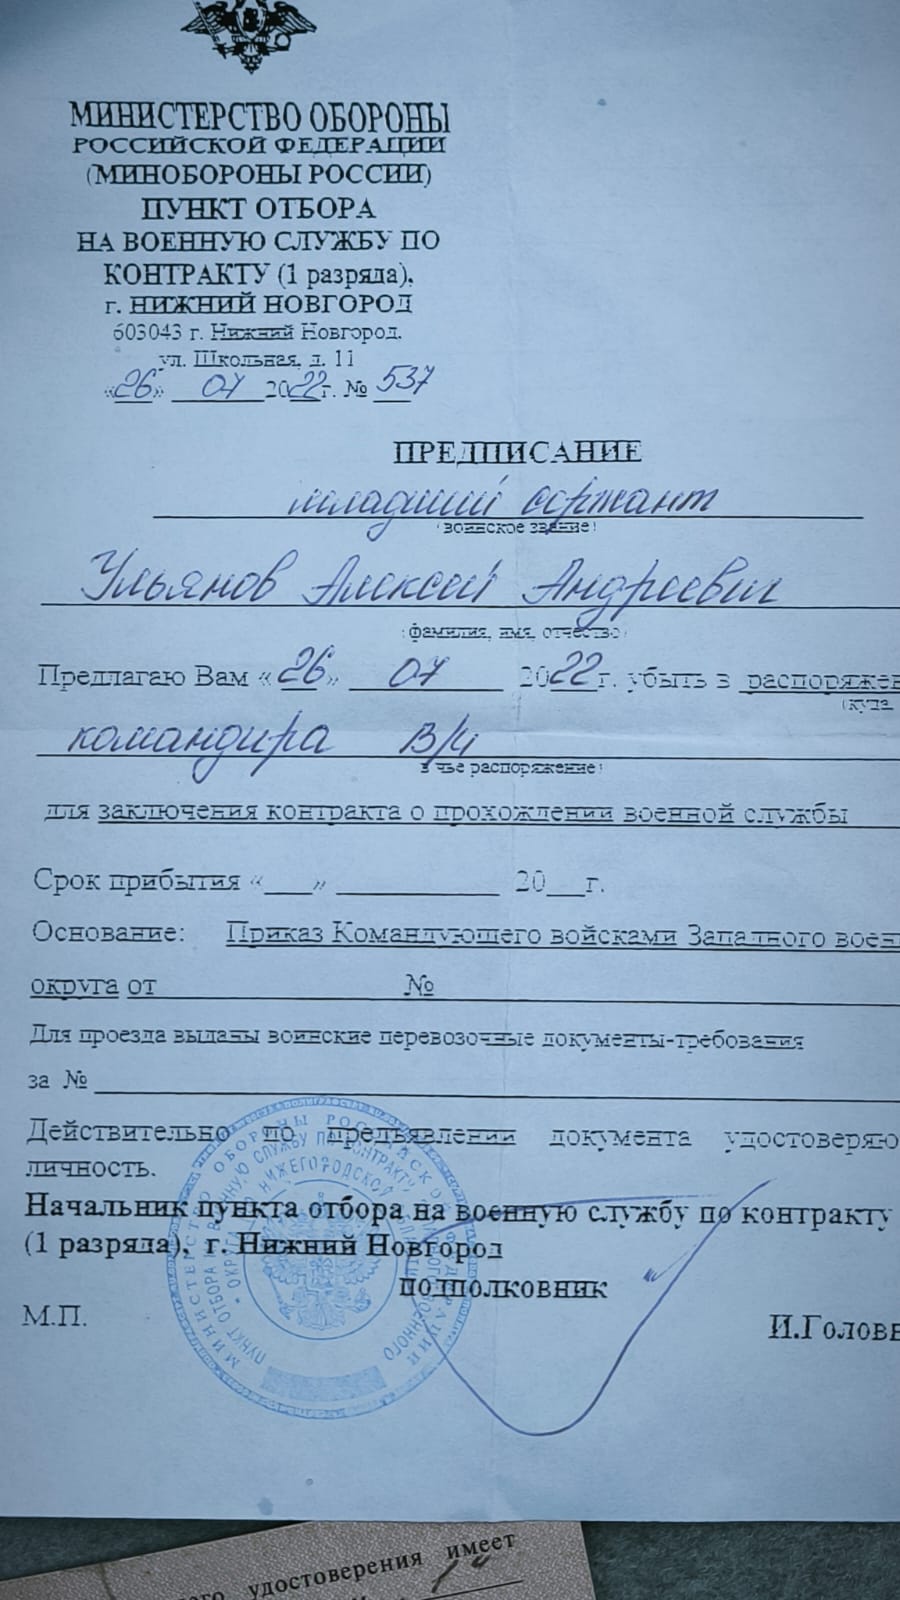 МИНИСТЕРСТВО ОБОРОНЫ
РОССИЙСКОЙ ФЕДЕРАЦИИ
(МИНОБОРОНЫ РОССИИ)
ПУНКТ ОТБОРА
НА ВОЕННУЮ СЛУЖБУ ПО
КОНТРАКТУ (1 разряда),
г. НИЖНИЙ НОВГОРОД
603043 г. Нижний Новгород,
ул. Школьная, д. 11
«26» 07 2022г. № 537
ПРЕДПИСАНИЕ
младший сержант
(воинское звание)
Ульянов Алексей Андреевич
(фамилия, имя, отчество)
Предлагаю Вам «26» 07 2022г. убыть в распоряжен
(куда
командира В/ч
в чье распоряжение)
для заключения контракта о прохождении военной службы
Срок прибытия «___» ________ 20__г.
Основание: Приказ Командующего войсками Западного воен
округа от № 
Для проезда выданы воинские перевозочные документы-требования
за №
Действительно по предъявлении документа удостоверяю
личность.
Начальник пункта отбора на военную службу по контракту
(1 разряда), г. Нижний Новгород
подполковник
М.П.
И.Голов
МИНИСТЕРСТВО ОБОРОНЫ РОССИЙСКОЙ ФЕДЕРАЦИИ
удостоверения имеет